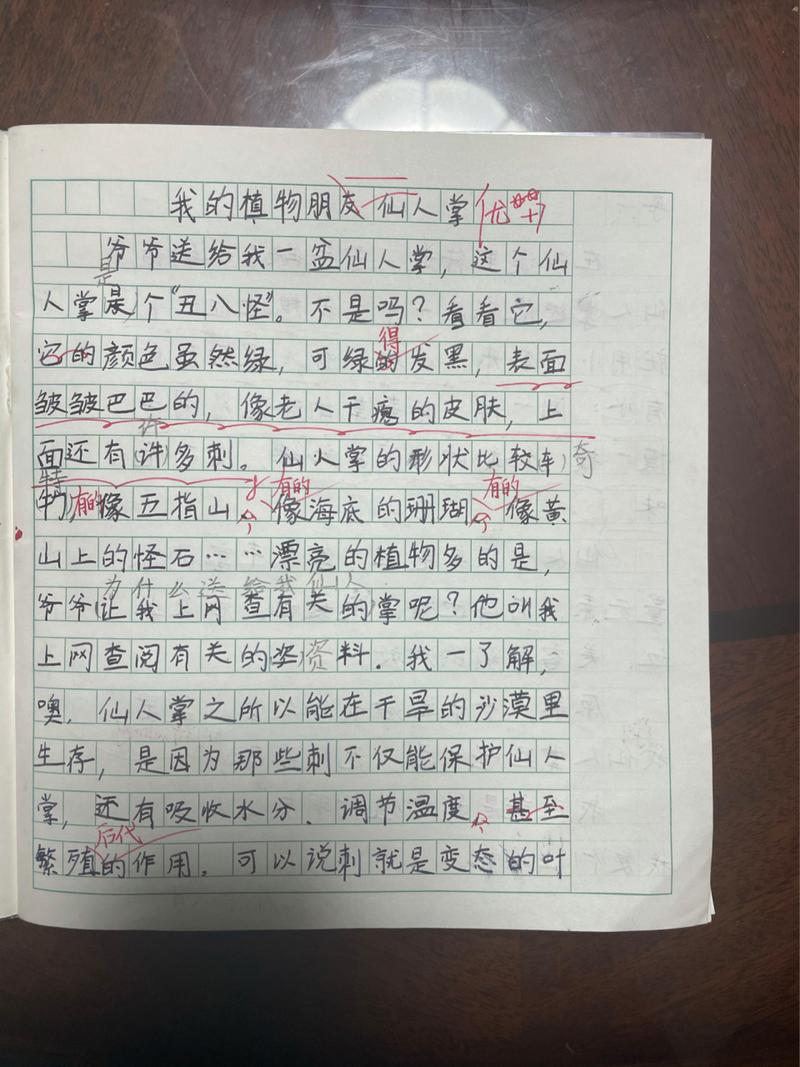 我的植物朋友仙人掌 优
爷爷送给我一盆仙人掌，这个仙
是
人掌是个“丑八怪”。不是吗？看看它，
得
它的颜色虽然绿，可绿的发黑，表面
皱皱巴巴的，像老人干瘪的皮肤，上
许
面还有(许)多刺。仙人掌的形状比较奇
特 有的 有的
有的像五指山，像海底的珊瑚，像黄
山上的怪石……漂亮的植物多的是，
为什么送给我仙人
爷爷(让我上网查有关的掌呢？他叫我
上网查阅有关的资料.我一了解，
噢，仙人掌之所以能在干旱的沙漠里
生存，是因为那些刺不仅能保护仙人
掌，还有吸收水分.调节温度，甚至
后代
繁殖的作用，可以说刺就是变态的叶